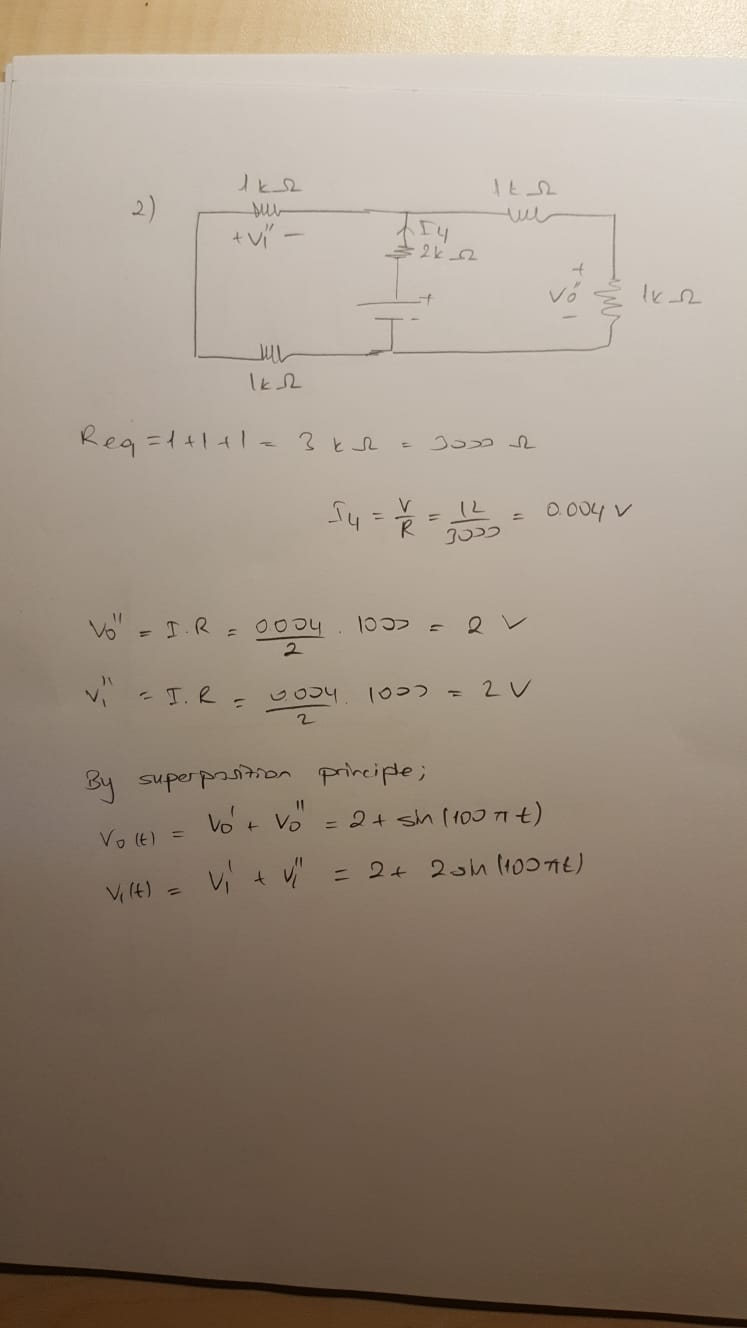 2)
1kΩ
1kΩ
+ V₁'' −
I4
2kΩ
+
+
V0''
1kΩ
−
-
1kΩ
Req = 1+1+1 = 3 kΩ = 3000 Ω
I4 = V/R = 12/3000 = 0.004 V
V0'' = I.R = 0.004/2 . 1000 = 2 V
V1'' = I.R = 0.004/2 . 1000 = 2 V
By superposition principle;
V0(t) = V0' + V0'' = 2 + sin(100πt)
V1(t) = V1' + V1'' = 2 + 2sin(100πt)